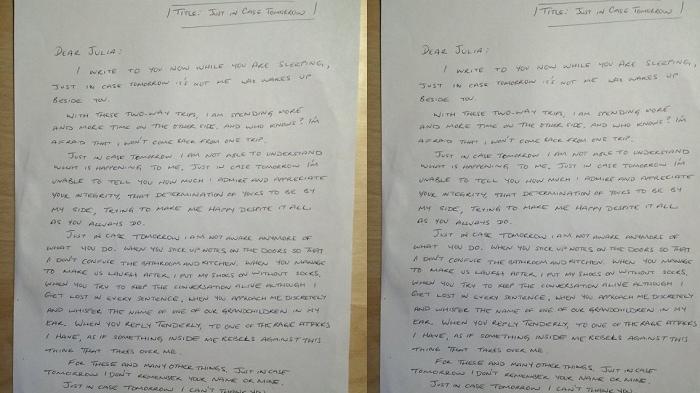 TITLE: JUST IN CASE TOMORROW
DEAR JULIA:
I WRITE TO YOU NOW WHILE YOU ARE SLEEPING,
JUST IN CASE TOMORROW IT'S NOT ME WHO WAKES UP
BESIDE YOU.
WITH THESE TWO-WAY TRIPS, I AM SPENDING MORE
AND MORE TIME ON THE OTHER SIDE, AND WHO KNOWS? I'M
AFRAID THAT I WON'T COME BACK FROM ONE TRIP.
JUST IN CASE TOMORROW I AM NOT ABLE TO UNDERSTAND
WHAT IS HAPPENING TO ME. JUST IN CASE TOMORROW I'M
UNABLE TO TELL YOU HOW MUCH I ADMIRE AND APPRECIATE
YOUR INTEGRITY, THAT DETERMINATION OF YOURS TO BE BY
MY SIDE, TRYING TO MAKE ME HAPPY DESPITE IT ALL
AS YOU ALWAYS DO.
JUST IN CASE TOMORROW I AM NOT AWARE ANYMORE OF
WHAT YOU DO. WHEN YOU STICK UP NOTES ON THE DOORS SO THAT
I DON'T CONFUSE THE BATHROOM AND KITCHEN. WHEN YOU MANAGE
TO MAKE US LAUGH AFTER I PUT MY SHOES ON WITHOUT SOCKS.
WHEN YOU TRY TO KEEP THE CONVERSATION ALIVE ALTHOUGH I
GET LOST IN EVERY SENTENCE, WHEN YOU APPROACH ME DISCRETELY
AND WHISPER THE NAME OF ONE OF OUR GRANDCHILDREN IN MY
EAR. WHEN YOU REPLY TENDERLY, TO ONE OF THE RAGE ATTACKS
I HAVE, AS IF SOMETHING INSIDE ME REBELS AGAINST THIS
THING THAT TAKES OVER ME.
FOR THESE AND MANY OTHER THINGS. JUST IN CASE
TOMORROW I DON'T REMEMBER YOUR NAME OR MINE.
JUST IN CASE TOMORROW I CAN'T THANK YOU
TITLE: JUST IN CASE TOMORROW
DEAR JULIA:
I WRITE TO YOU NOW WHILE YOU ARE SLEEPING,
JUST IN CASE TOMORROW IT'S NOT ME WHO WAKES UP
BESIDE YOU.
WITH THESE TWO-WAY TRIPS, I AM SPENDING MORE
AND MORE TIME ON THE OTHER SIDE, AND WHO KNOWS? I'M
AFRAID THAT I WON'T COME BACK FROM ONE TRIP.
JUST IN CASE TOMORROW I AM NOT ABLE TO UNDERSTAND
WHAT IS HAPPENING TO ME. JUST IN CASE TOMORROW I'M
UNABLE TO TELL YOU HOW MUCH I ADMIRE AND APPRECIATE
YOUR INTEGRITY, THAT DETERMINATION OF YOURS TO BE BY
MY SIDE, TRYING TO MAKE ME HAPPY DESPITE IT ALL
AS YOU ALWAYS DO.
JUST IN CASE TOMORROW I AM NOT AWARE ANYMORE OF
WHAT YOU DO. WHEN YOU STICK UP NOTES ON THE DOORS SO THAT
I DON'T CONFUSE THE BATHROOM AND KITCHEN. WHEN YOU MANAGE
TO MAKE US LAUGH AFTER I PUT MY SHOES ON WITHOUT SOCKS.
WHEN YOU TRY TO KEEP THE CONVERSATION ALIVE ALTHOUGH I
GET LOST IN EVERY SENTENCE, WHEN YOU APPROACH ME DISCRETELY
AND WHISPER THE NAME OF ONE OF OUR GRANDCHILDREN IN MY
EAR. WHEN YOU REPLY TENDERLY, TO ONE OF THE RAGE ATTACKS
I HAVE, AS IF SOMETHING INSIDE ME REBELS AGAINST THIS
THING THAT TAKES OVER ME.
FOR THESE AND MANY OTHER THINGS. JUST IN CASE
TOMORROW I DON'T REMEMBER YOUR NAME OR MINE.
JUST IN CASE TOMORROW I CAN'T THANK YOU